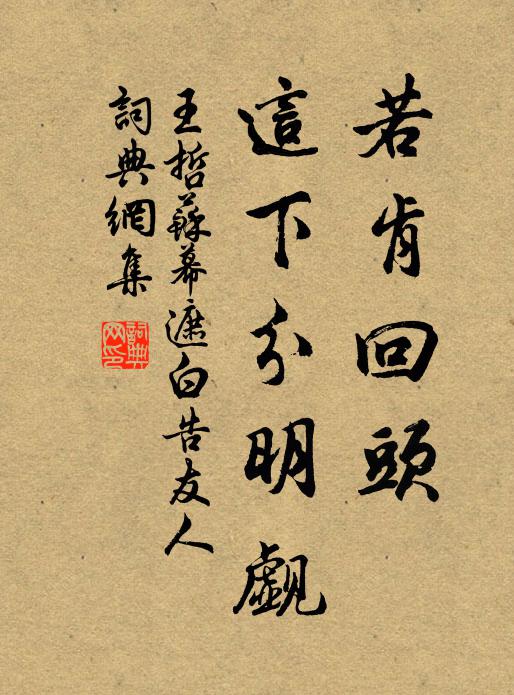 若肯回頭
這下分明覷
王哲蘇幕遮白告友人
詞典網集
詞典网印